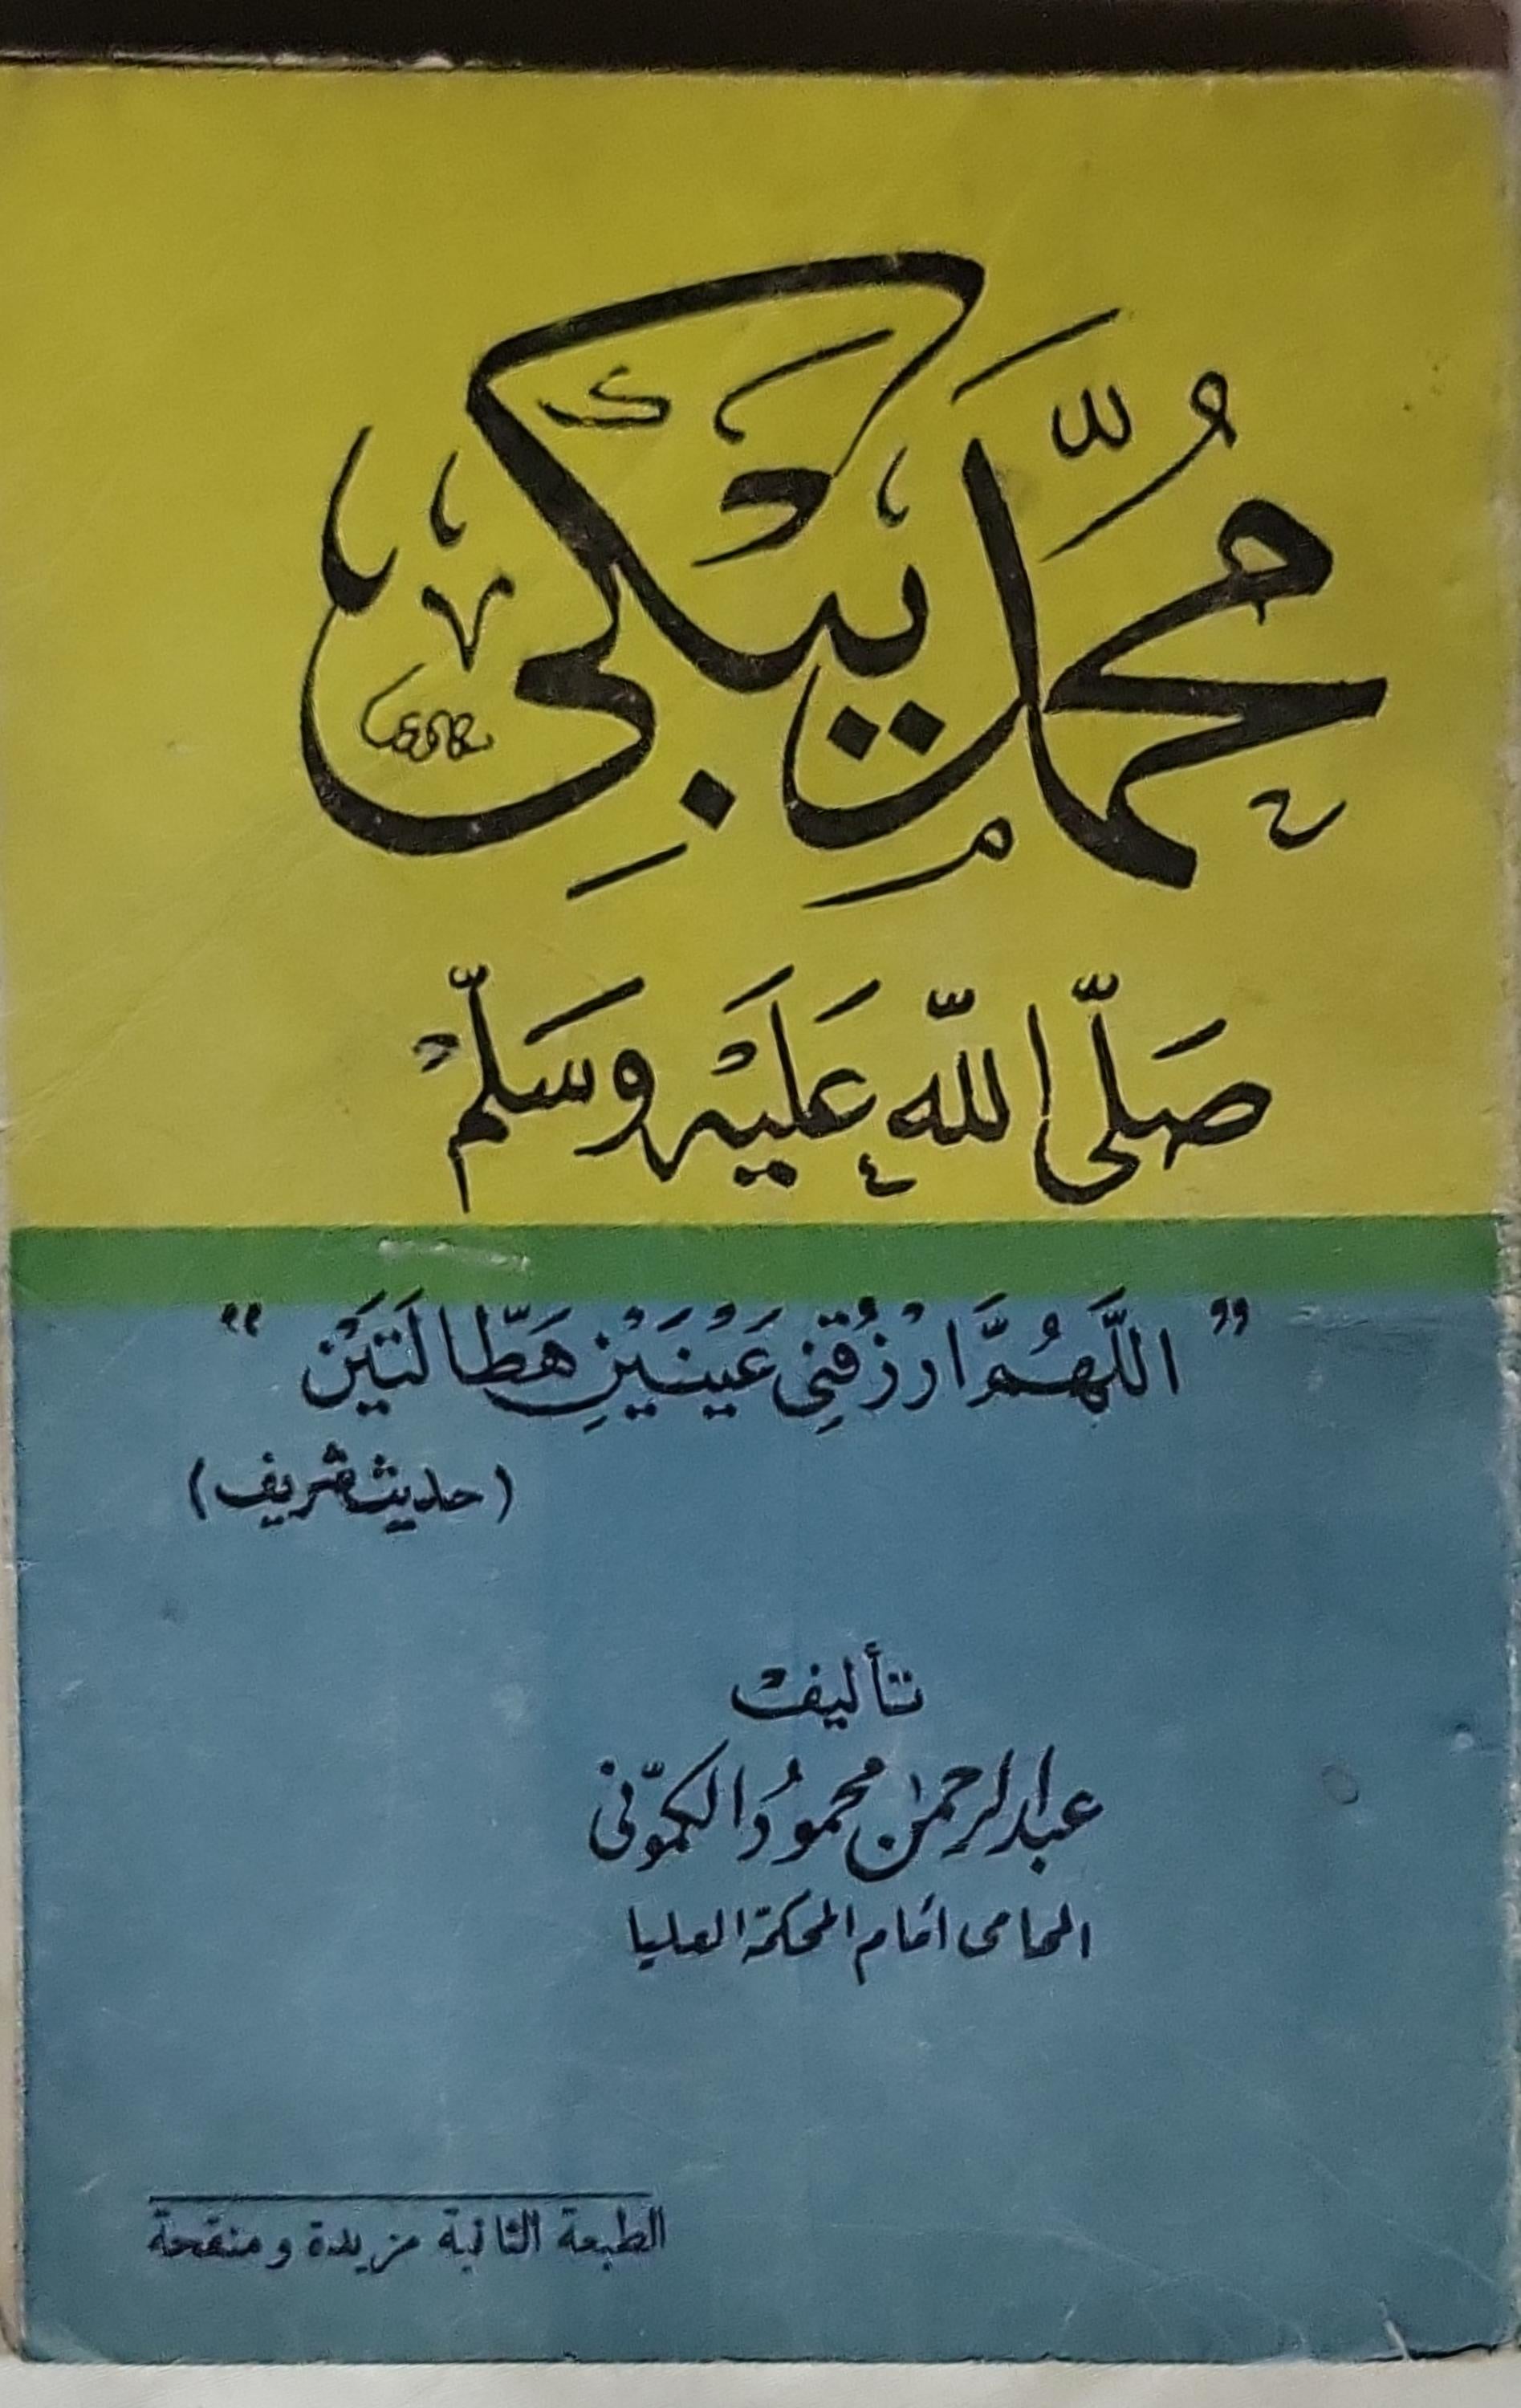 محمد يبكى
صلى الله عليه وسلم
" اللهم ارزقني عينين هطالتين "
(حديث شريف)
تأليف
عبد الرحمن محمود الكموني
المحامى أمام المحكمة العليا
الطبعة الثانية مزيدة ومنقحة